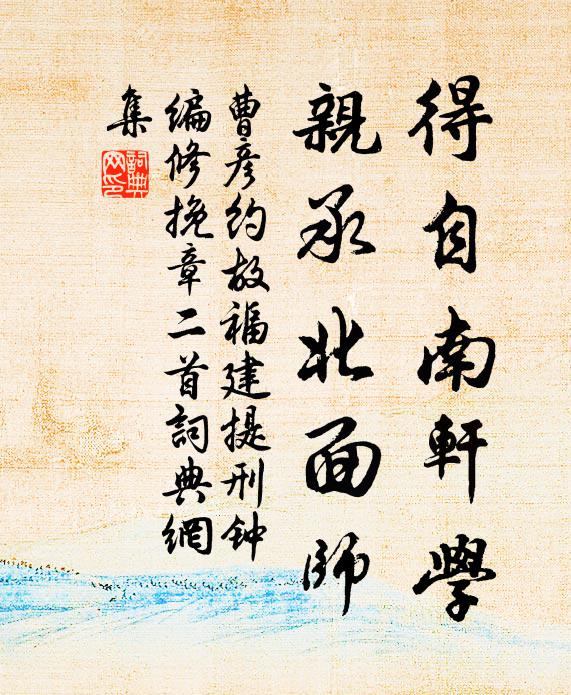 得自南軒學
親承北面師
曹彦約故福建提刑钟
编修挽章二首詞典網
集
詞典網印